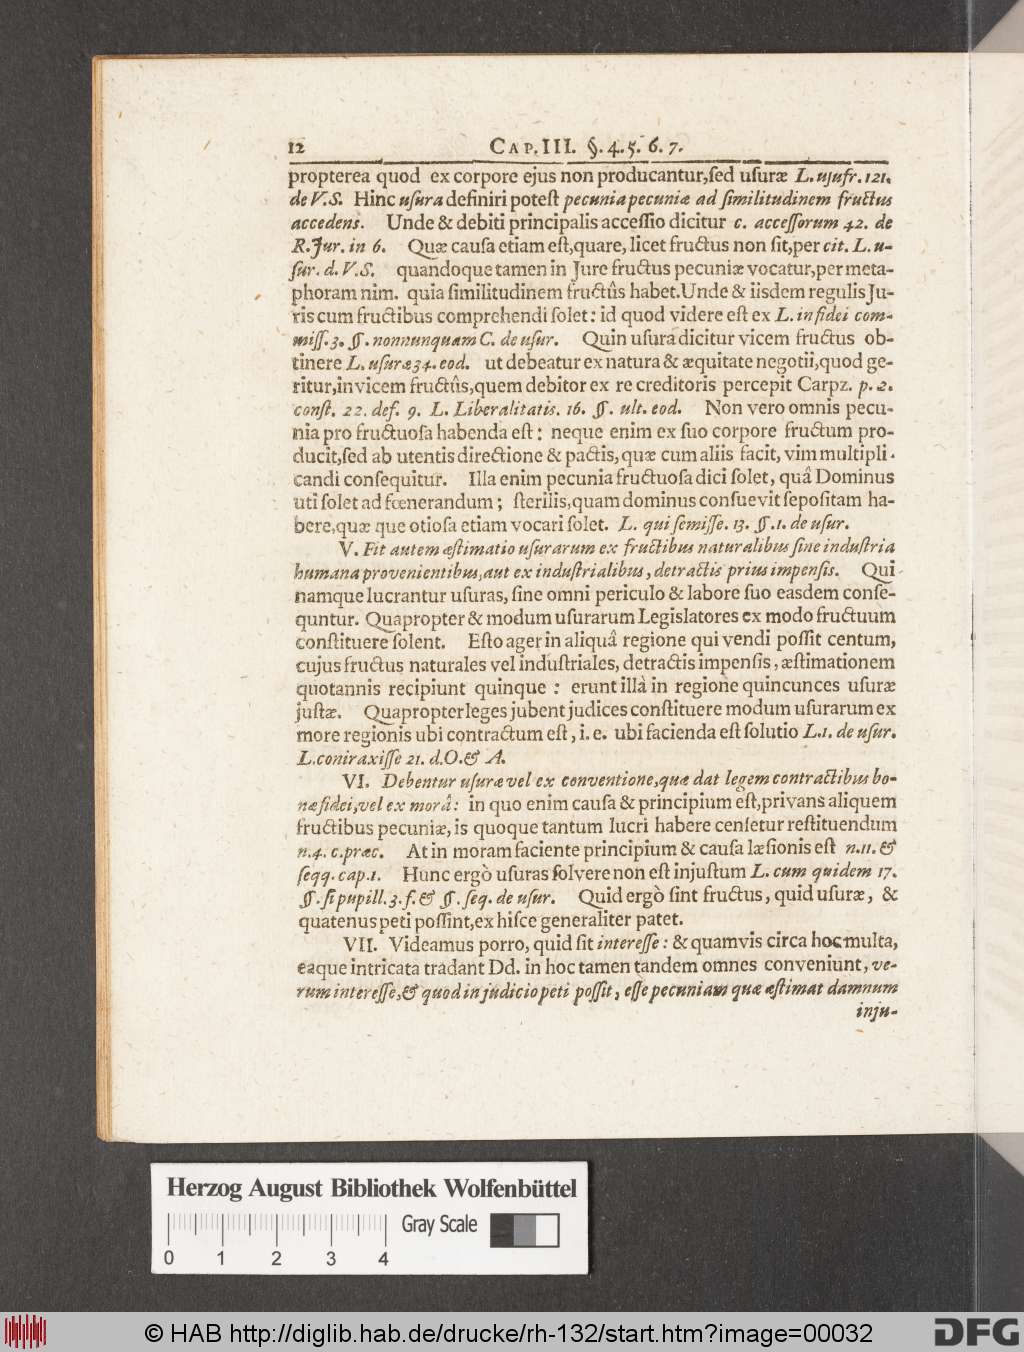 12 CAP. III. §. 4. 5. 6. 7.
propterea quod ex corpore ejus non producantur,ſed uſuræ L. uſufr. 121.
de V.S. Hinc uſura definiri poteſt pecunia pecuniæ ad ſimilitudinem fructus
accedens. Unde & debiti principalis acceſſio dicitur c. acceſſorum 42. de
R. Jur. in 6. Quæ cauſa etiam eſt,quare, licet fructus non ſit,per cit. L. u-
ſur. d. V.S. quandoque tamen in Jure fructus pecuniæ vocatur,per meta-
phoram nim. quia ſimilitudinem fructûs habet.Unde & iisdem regulis Ju-
ris cum fructibus comprehendi ſolet: id quod videre eſt ex L. in fidei com-
miſſ. 3. §. nonnunquam C. de uſur. Quin uſura dicitur vicem fructus ob-
tinere L. uſuræ 34. eod. ut debeatur ex natura & æquitate negotii,quod ge-
ritur,in vicem fructûs,quem debitor ex re creditoris percepit Carpz. p. 2.
conſt. 22. def. 9. L. Liberalitatis. 16. §. ult. eod. Non vero omnis pecu-
nia pro fructuoſa habenda eſt: neque enim ex ſuo corpore fructum pro-
ducit,ſed ab utentis directione & pactis, quæ cum aliis facit, vim multipli-
candi conſequitur. Illa enim pecunia fructuoſa dici ſolet, quâ Dominus
uti ſolet ad fœnerandum; ſterilis,quam dominus conſuevit ſepoſitam ha-
bere,quæ que otioſa etiam vocari ſolet. L. qui ſemiſſe. 13. §. 1. de uſur.
V. Fit autem æſtimatio uſurarum ex fructibus naturalibus ſine induſtria
humana provenientibus,aut ex induſtrialibus, detractis prius impenſis. Qui
namque lucrantur uſuras, ſine omni periculo & labore ſuo easdem conſe-
quntur. Quapropter & modum uſurarum Legislatores ex modo fructuum
conſtituere ſolent. Eſto ager in aliquâ regione qui vendi poſſit centum,
cujus fructus naturales vel induſtriales, detractis impenſis, æſtimationem
quotannis recipiunt quinque : erunt illà in regione quincunces uſuræ
juſtæ. Quapropter leges jubent judices conſtituere modum uſurarum ex
more regionis ubi contractum eſt, i. e. ubi facienda eſt ſolutio L.1. de uſur.
L.coniraxiſſe 21. d.O.& A.
VI. Debentur uſuræ vel ex conventione,quæ dat legem contractibus bo-
næ fidei,vel ex morâ: in quo enim cauſa & principium eſt,privans aliquem
fructibus pecuniæ, is quoque tantum lucri habere cenſetur reſtituendum
n.4. c.præc. At in moram faciente principium & cauſa læſionis eſt n.11. &
ſeqq. cap.1. Hunc ergò uſuras ſolvere non eſt injuſtum L. cum quidem 17.
§. ſi pupill. 3. f. & §. ſeq. de uſur. Quid ergò ſint fructus, quid uſuræ, &
quatenus peti poſſint,ex hiſce generaliter patet.
VII. Videamus porro, quid ſit intereſſe: & quamvis circa hoc multa,
eaque intricata tradant Dd. in hoc tamen tandem omnes conveniunt, ve-
rum intereſſe,& quod in judicio peti poſſit, eſſe pecuniam quæ æſtimat damnum
inju-
Herzog August Bibliothek Wolfenbüttel
Gray Scale
0 1 2 3 4
© HAB http://diglib.hab.de/drucke/rh-132/start.htm?image=00032
DFG